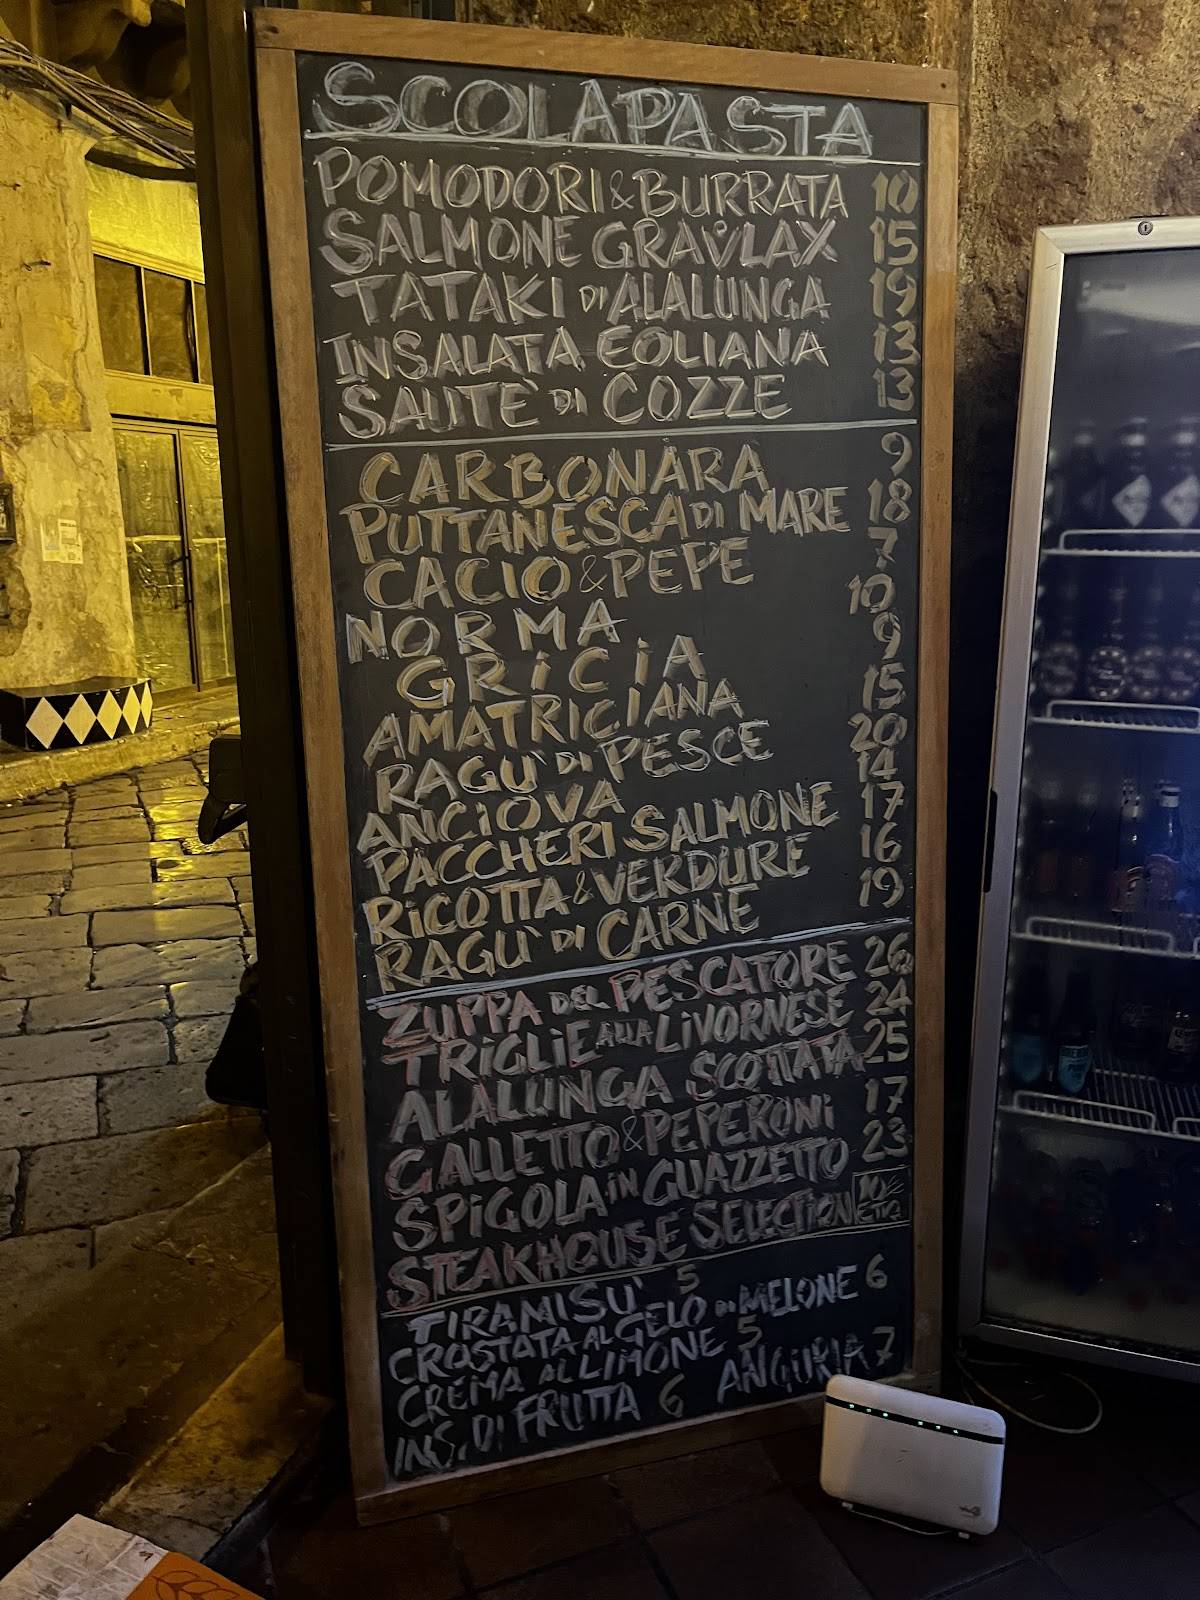 SCOLAPASTA
POMODORI & BURRATA 10
SALMONE GRAVLAX 15
TATAKI DI ALALUNGA 19
INSALATA EOLIANA 13
SAUTÈ DI COZZE 13
CARBONARA 9
PUTTANESCA DI MARE 18
CACIO & PEPE 7
NORMA 10
GRICIA 9
AMATRICIANA 15
RAGU' DI PESCE 20
ANCIOVA 14
PACCHERI SALMONE 17
RICOTTA & VERDURE 16
RAGU' DI CARNE 19
ZUPPA DEL PESCATORE 26
TRIGLIE ALLA LIVORNESE 24
ALALUNGA SCOTTATA 25
GALLETTO & PEPERONI 17
SPIGOLA IN GUAZZETTO 23
STEAKHOUSE SELECTION 10€ ETTO
TIRAMISU' 5
CROSTATA AL GELO DI MELONE 6
CREMA AL LIMONE 5
INS. DI FRUTTA 6 ANGURIA 7